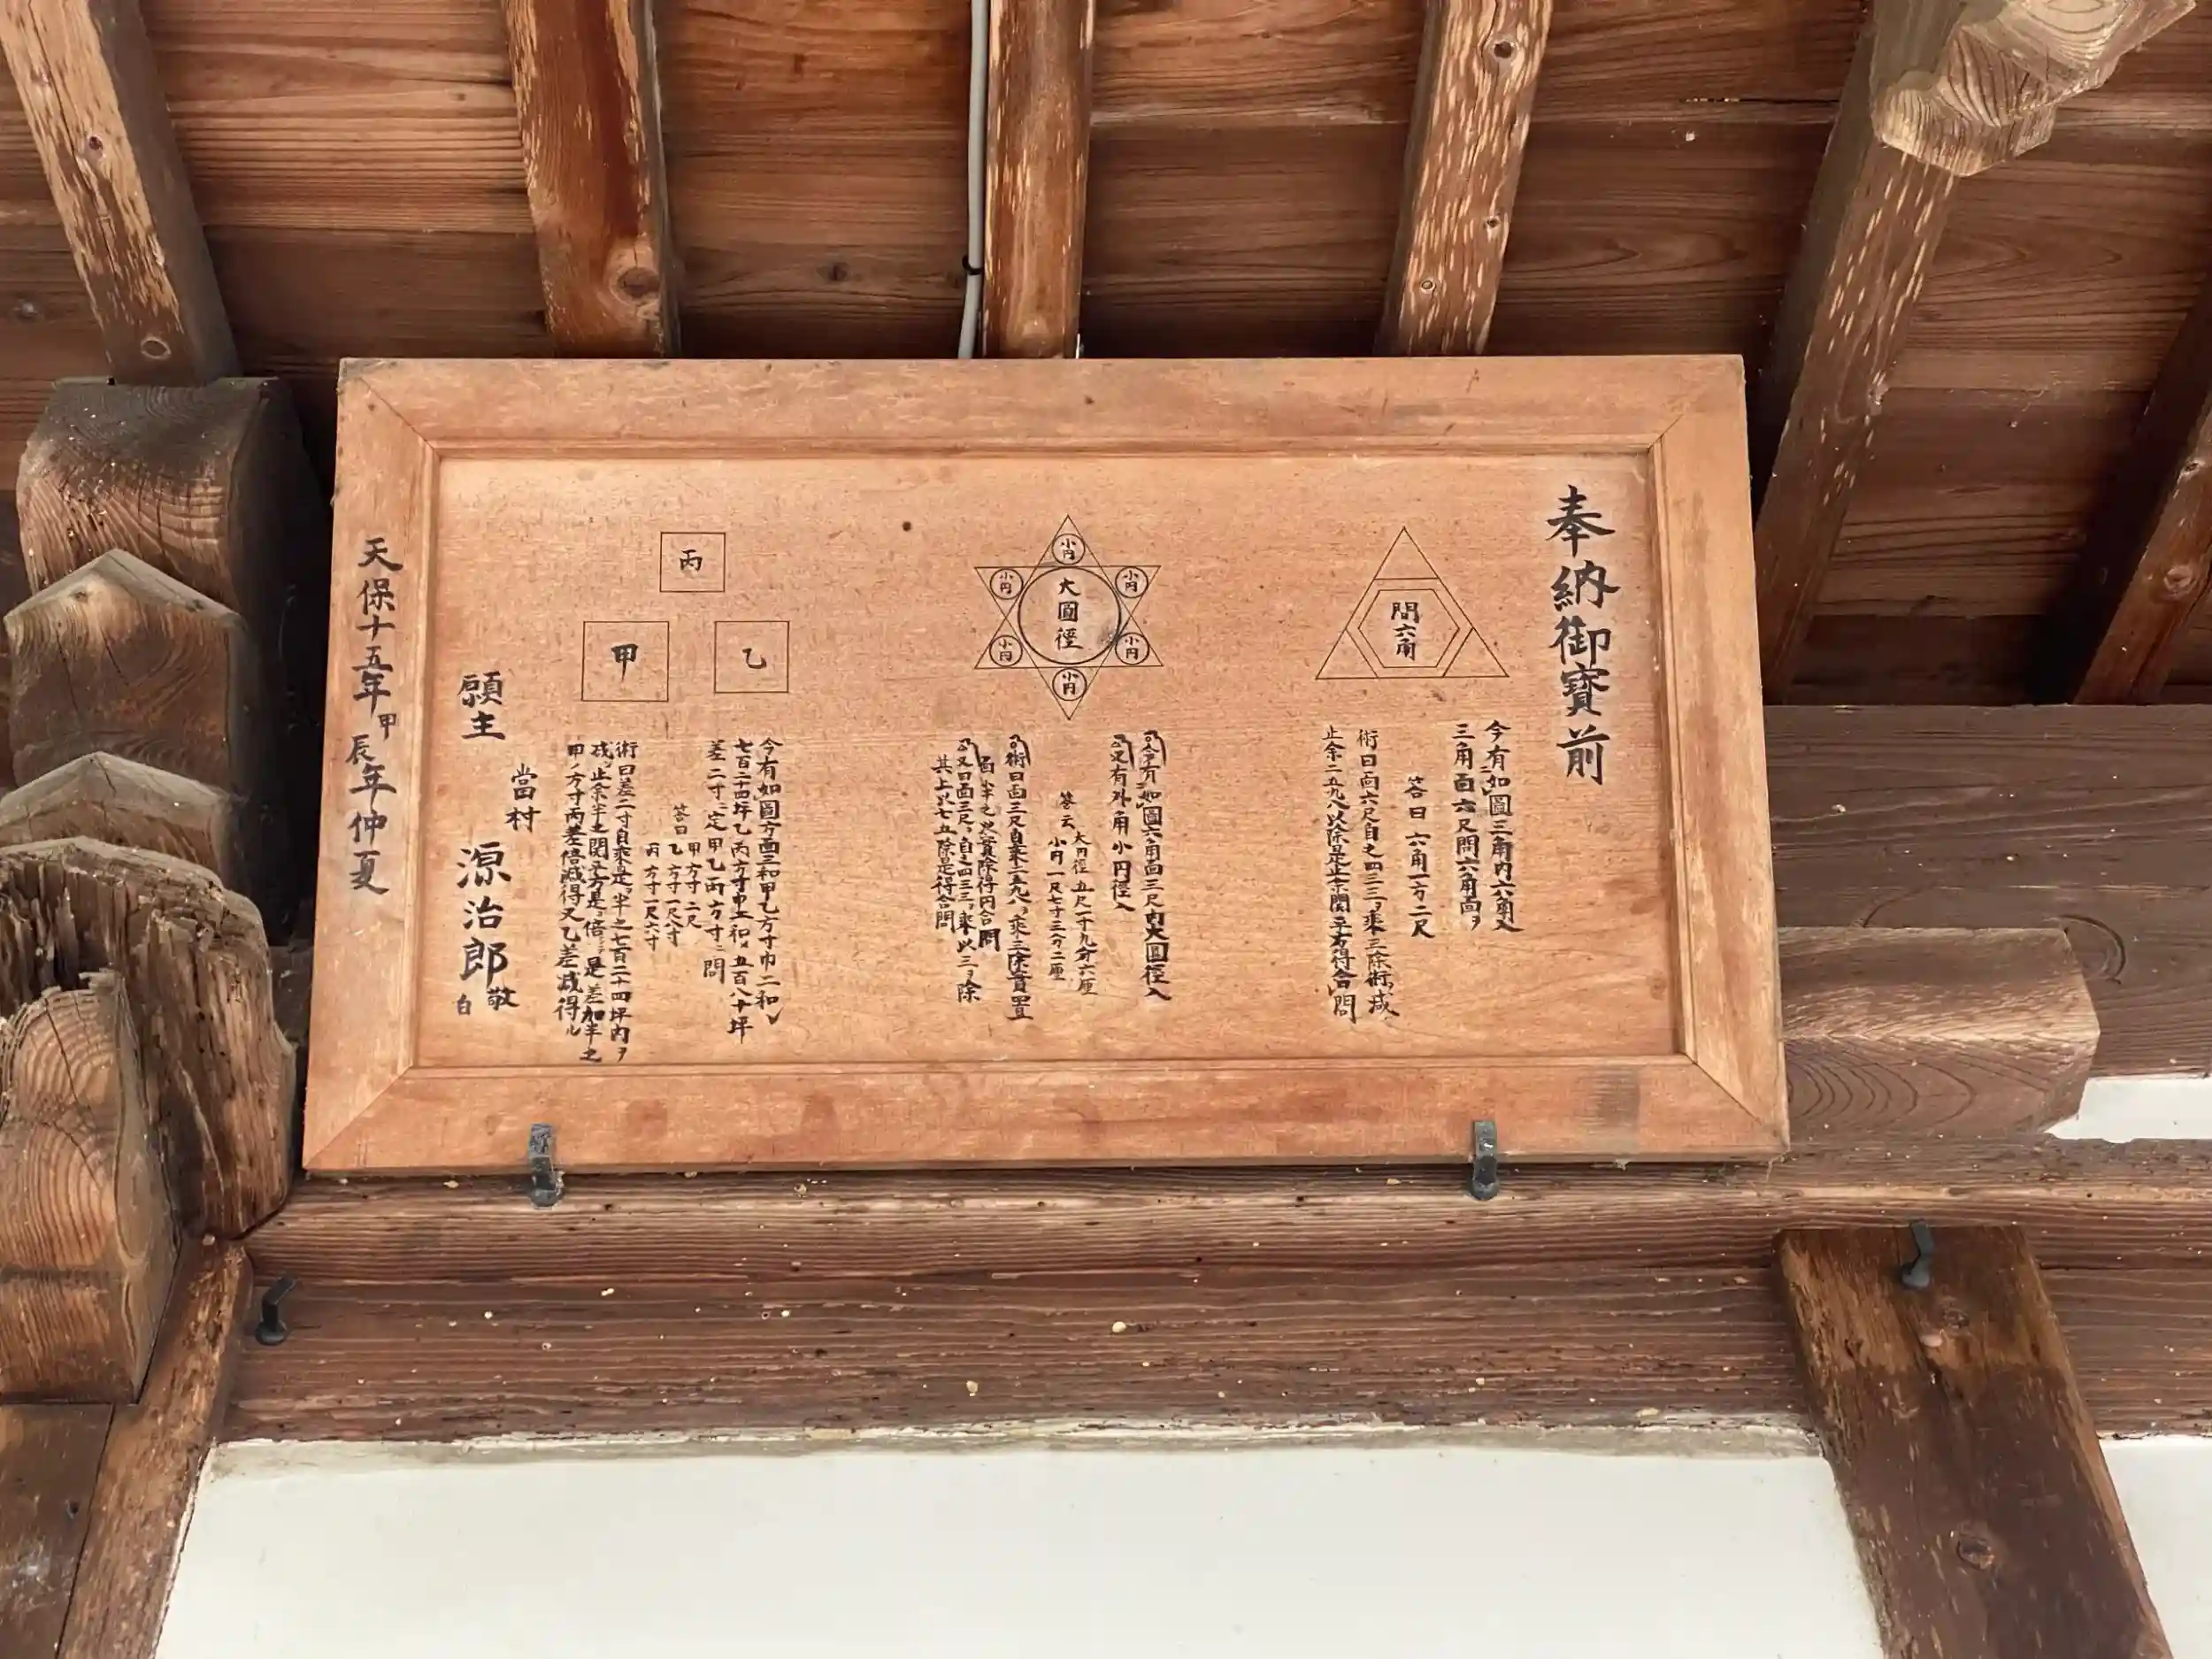 奉納御寶前
問六角
今有如圖三角内六角入
三角面六尺問六角面ヲ
答曰 六角一方二尺
術曰面六尺自之四三三ヲ乘三除術ヲ減
止余二五九八以除是止余開平方得合問
小円
小円
小円
大圓徑
小円
小円
小円
今有如圖六角面三尺内大圓徑入
又有外角小円徑入
答云
大円徑五尺一寸九分六厘
小円一尺七寸三分二厘
術曰面三尺自乘二五九八ヲ乘三除實置
面半之也實除得円合問
又曰面三尺ヲ自之四三三ヲ乘以三ヲ除
其上以七五除是得合問
丙
甲
乙
今有如圖方面三和甲乙方寸巾二和〆
七百二十四坪乙丙方寸巾二和〆五百八十坪
差二寸ニ定甲乙丙方寸ニ問
答曰
甲方寸二尺
乙方寸一尺八寸
丙方寸一尺六寸
術曰差二寸自乘是ヲ半之七百二十四坪内ヲ
減ヲ止余半之開平方是ヲ倍ニ是差加半之
甲ノ方寸丙差倍減得又乙差減得ル
願主
當村
源治郎
敬白
天保十五年甲辰年仲夏